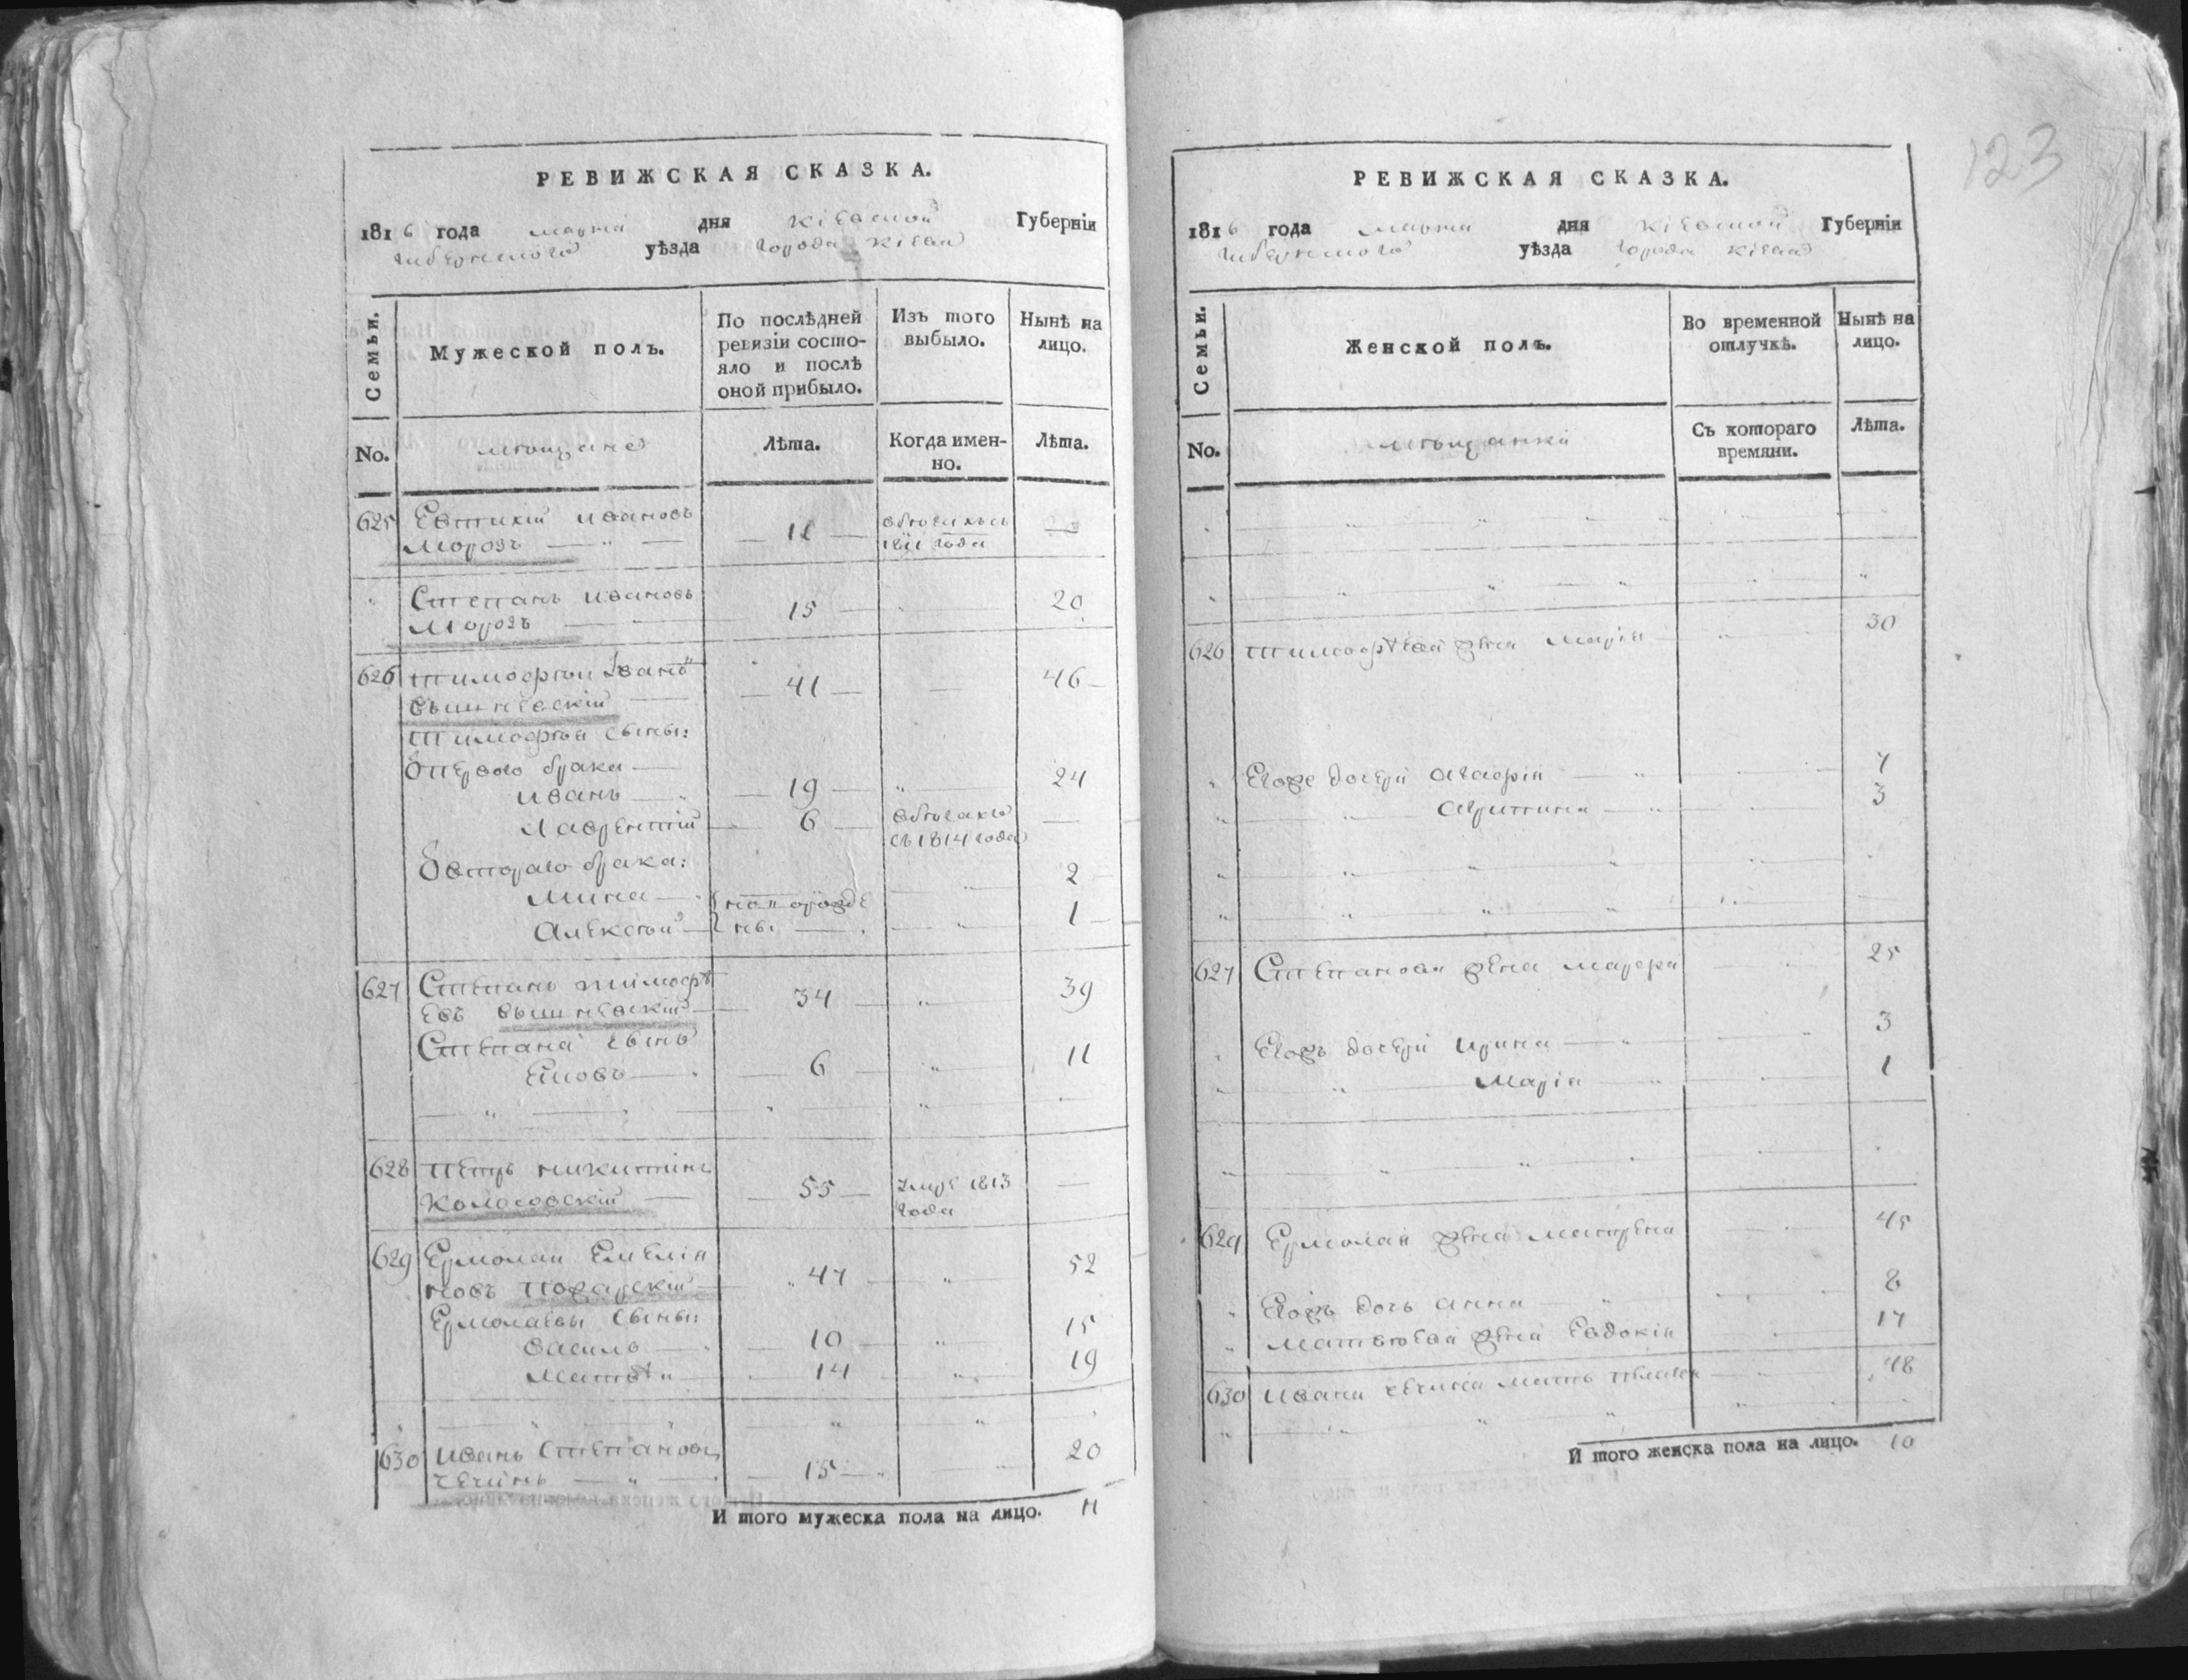 РЕВИЖСКАЯ СКАЗКА.
1816 года марта дня Кіевской Губерніи
Губернского уѣзда города Кіева
Семьи.
Мужеской полъ.
По послѣдней ревизіи состо-
яло и послѣ
оной прибыло.
Изъ того
выбыло.
Нынѣ на
лицо.
No.
мѣщане
Лѣта.
Когда имен-
но.
Лѣта.
625 Евтихій Ивановъ
Морозъ — 1811 года —
Степанъ Ивановъ
Морозъ 15 20
626 Тимофѣй Иванъ
Вышневскій 41 46
Тимофѣя сыны:
Первого брака
Иванъ 19 24
Лаврентій 6 въ бѣгахъ —
съ 1814 года
второго брака:
Мина 2
после ревизіи рожде
Алексѣй ны 1
627 Степанъ Тимофѣ
евъ Вышневскій 34 39
Степана сынъ
Яковъ 6 11
628 Петръ Никитинъ
Колосовскій 55 умре 1813 —
года
629 Ермолай Емелія
новъ Пожарскій 47 52
Ермолаевы сыны:
Василь 10 15
Матвѣй 14 19
630 Иванъ Степановъ
Чечинъ 15 20
И того мужеска пола на лицо. 11
123
РЕВИЖСКАЯ СКАЗКА.
1816 года марта дня Кіевской Губерніи
Губернского уѣзда города Кіева
Семьи.
Женской полъ.
Во временной
отлучкѣ.
Нынѣ на
лицо.
No.
мѣщанки
Съ котораго
времяни.
Лѣта.
626 Тимофѣева жена Марія 30
Егоже дочери Агафія 7
Агрипина 3
627 Степанова жена Марфа 25
Егожъ дочери Ирина 3
Марія 1
629 Ермолая жена Матрена 45
Егожъ дочь Анна 8
Матвѣева жена Евдокія 17
630 Ивана Чечина мать 48
И того женска пола на лицо. 10